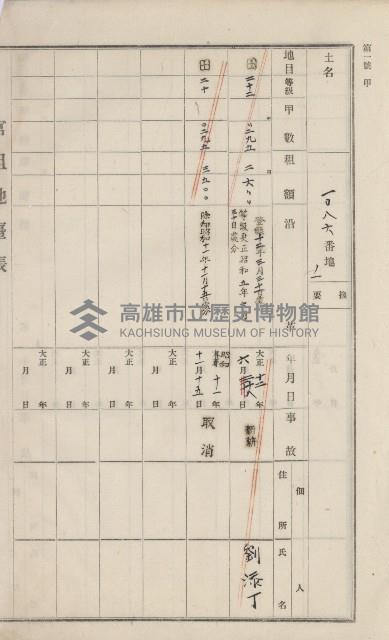 第一號甲
土名
一〇八六番地ノ一
摘要
地目
等級
甲數
租額
沿革
年月日
事故
佃人
住所
氏名
田
二十二
二九五
二六
登錄十二年三月三十
等級更正昭和五年
大正十二年六月二十八日
新耕
劉添丁
田
二十
〇二九五
三五〇〇
除却昭和十一年十一月十五日處分
昭和十一年
十一月十五日
取消
大正 年 月 日
大正 年 月 日
大正 年 月 日
官租地臺帳
高雄市立歷史博物館
KAOHSIUNG MUSEUM OF HISTORY